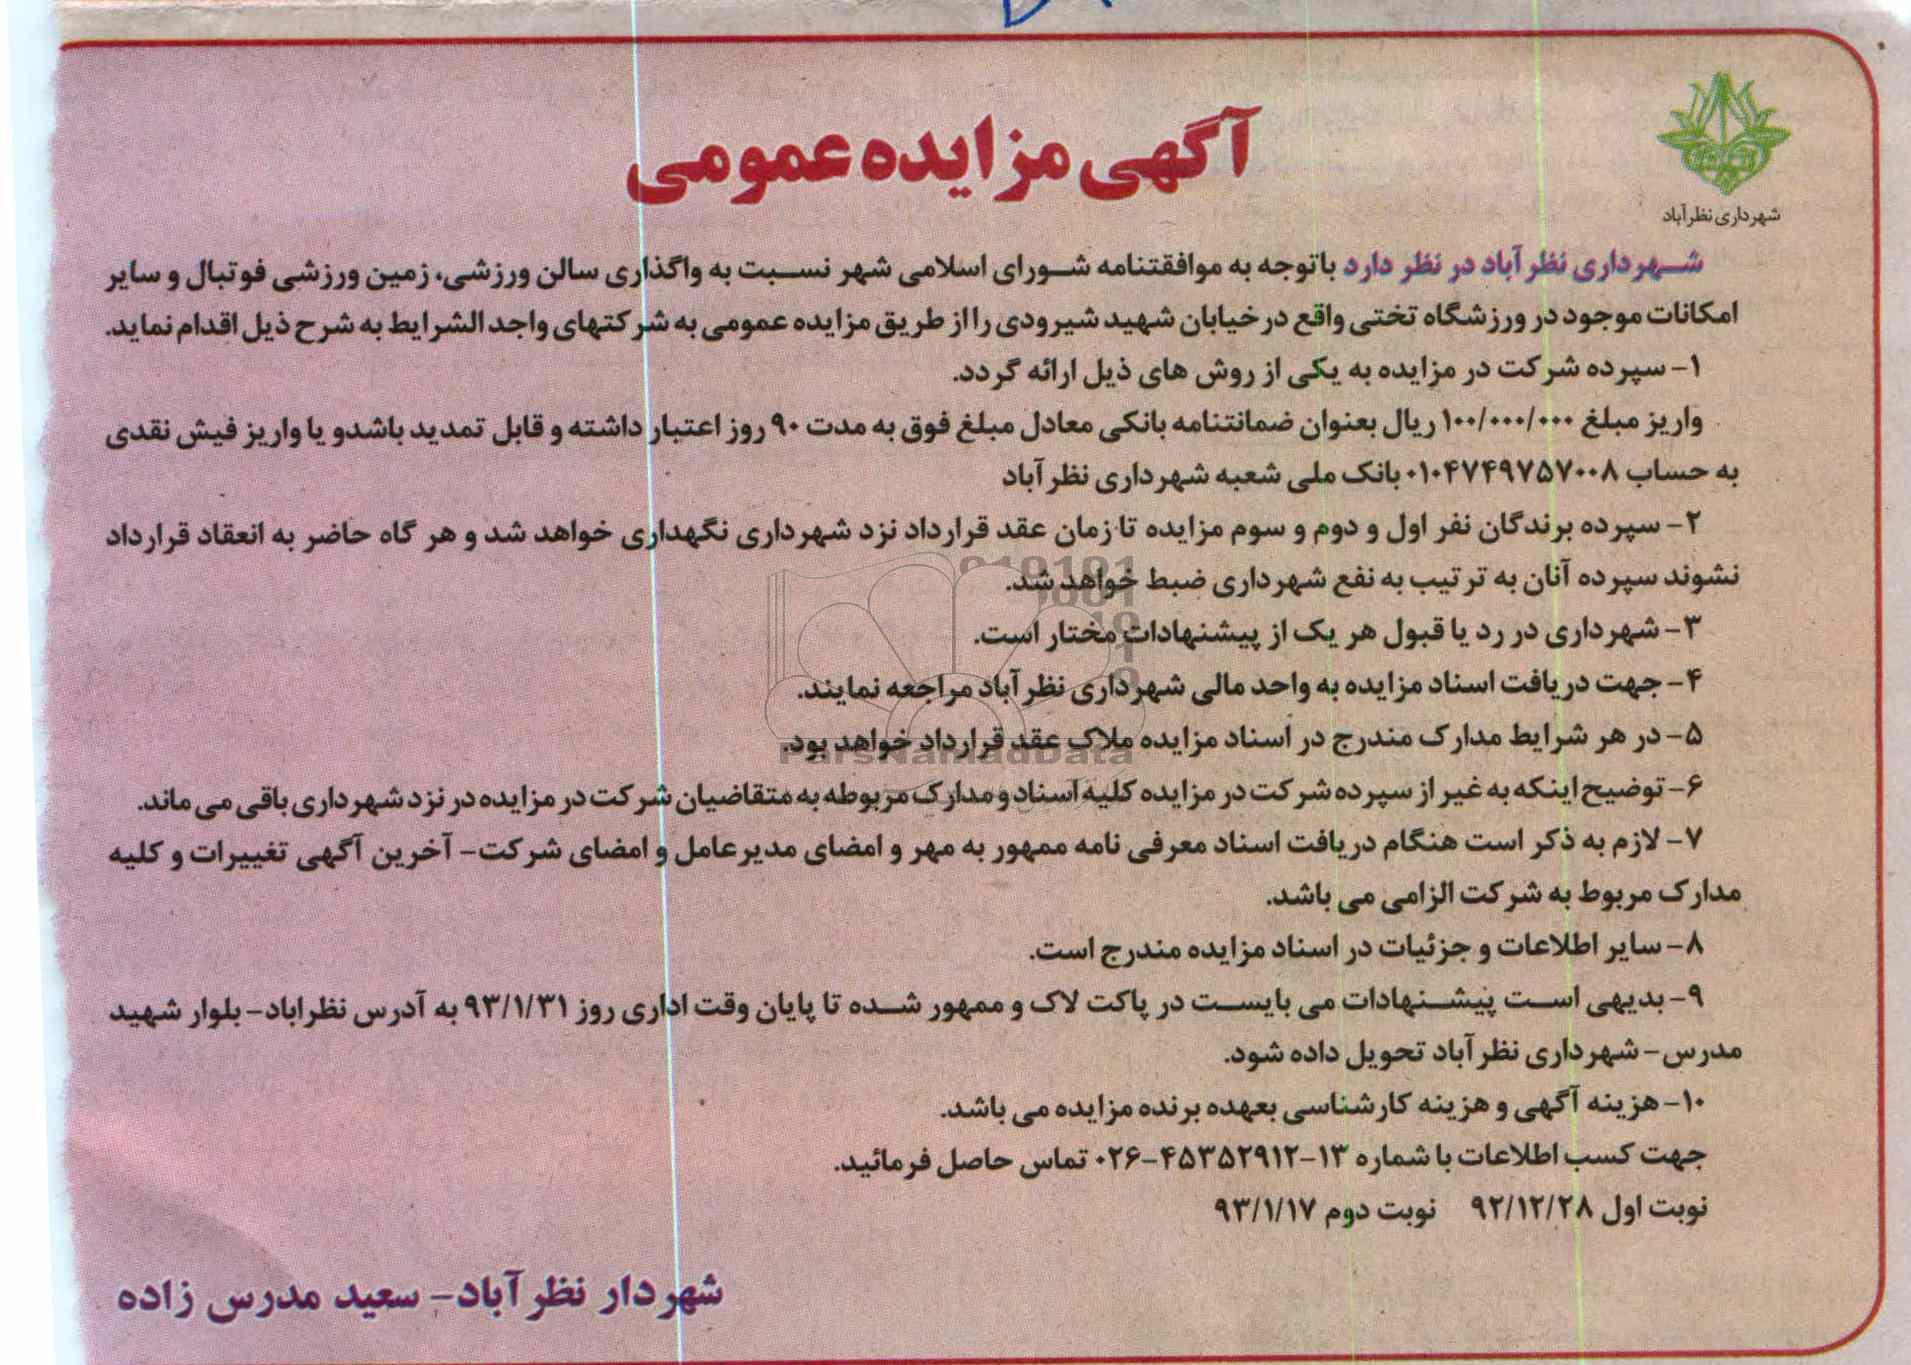 شهرداری نظرآباد
آگهی مزایده عمومی
شهرداری نظرآباد در نظر دارد باتوجه به موافقتنامه شورای اسلامی شهر نسبت به واگذاری سالن ورزشی، زمین ورزشی فوتبال و سایر
امکانات موجود در ورزشگاه تختی واقع در خیابان شهید شیرودی را از طریق مزایده عمومی به شرکتهای واجد الشرایط به شرح ذیل اقدام نماید.
۱- سپرده شرکت در مزایده به یکی از روش های ذیل ارائه گردد.
واریز مبلغ ۱۰۰/۰۰۰/۰۰۰ ریال بعنوان ضمانتنامه بانکی معادل مبلغ فوق به مدت ۹۰ روز اعتبار داشته و قابل تمدید باشدو یا واریز فیش نقدی
به حساب ۰۱۰۴۷۴۹۷۵۷۰۰۸ بانک ملی شعبه شهرداری نظرآباد
۲- سپرده برندگان نفر اول و دوم و سوم مزایده تا زمان عقد قرارداد نزد شهرداری نگهداری خواهد شد و هر گاه حاضر به انعقاد قرارداد
نشوند سپرده آنان به ترتیب به نفع شهرداری ضبط خواهد شد.
۳- شهرداری در رد یا قبول هر یک از پیشنهادات مختار است.
۴- جهت دریافت اسناد مزایده به واحد مالی شهرداری نظرآباد مراجعه نمایند.
۵- در هر شرایط مدارک مندرج در اسناد مزایده ملاک عقد قرارداد خواهد بود.
ParsNamadData
۶- توضیح اینکه به غیر از سپرده شرکت در مزایده کلیه اسناد و مدارک مربوطه به متقاضیان شرکت در مزایده در نزد شهرداری باقی می ماند.
۷- لازم به ذکر است هنگام دریافت اسناد معرفی نامه ممهور به مهر و امضای مدیرعامل و امضای شرکت- آخرین آگهی تغییرات و کلیه
مدارک مربوط به شرکت الزامی می باشد.
۸- سایر اطلاعات و جزئیات در اسناد مزایده مندرج است.
۹- بدیهی است پیشنهادات می بایست در پاکت لاک و ممهور شده تا پایان وقت اداری روز ۹۳/۱/۳۱ به آدرس نظراباد- بلوار شهید
مدرس- شهرداری نظرآباد تحویل داده شود.
۱۰- هزینه آگهی و هزینه کارشناسی بعهده برنده مزایده می باشد.
جهت کسب اطلاعات با شماره ۱۳-۴۵۳۵۲۹۱۲-۰۲۶ تماس حاصل فرمائید.
نوبت اول ۹۲/۱۲/۲۸ نوبت دوم ۹۳/۱/۱۷
شهردار نظرآباد- سعید مدرس زاده